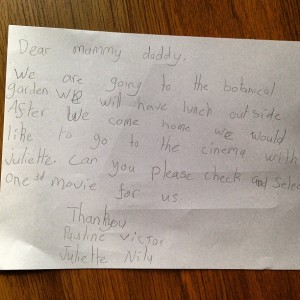 Dear mammy daddy,
We are going to the botanical
garden We will have lunch outside
After We come home we would
like to go to the cinema with
Juliette. Can you please check and Selec
one 3d movie for us
Thankyou
Pauline Victor
Juliette Nily